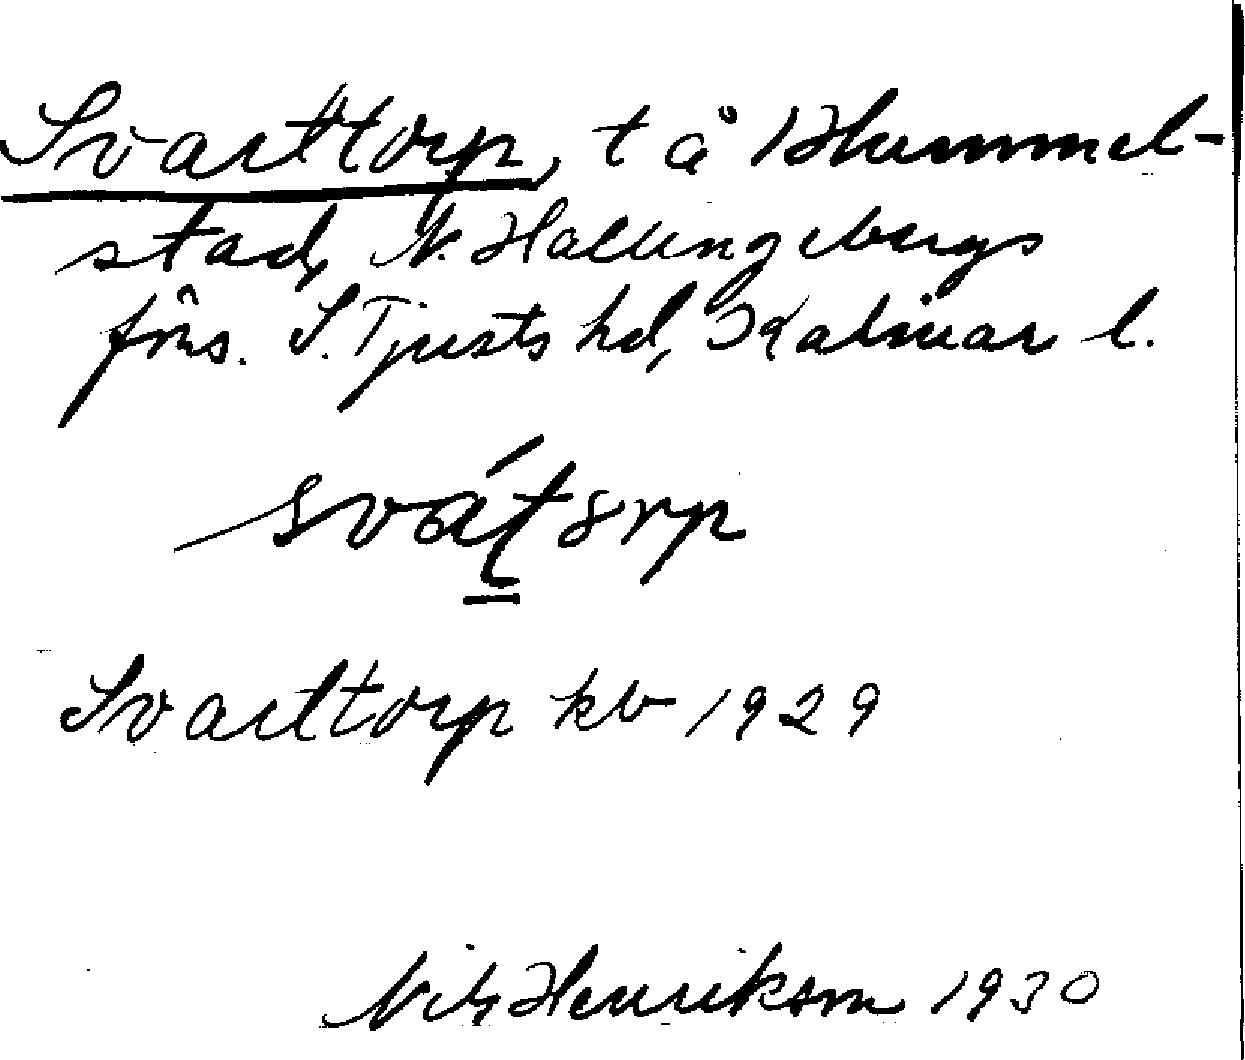 Svarttorp, t å Hummel-
stad, N. Hallingebergs
förs. S. Tjusts hd, Kalmar l.
sváṯorp
Svarttorp kb 1929
Nils Henrikson 1930